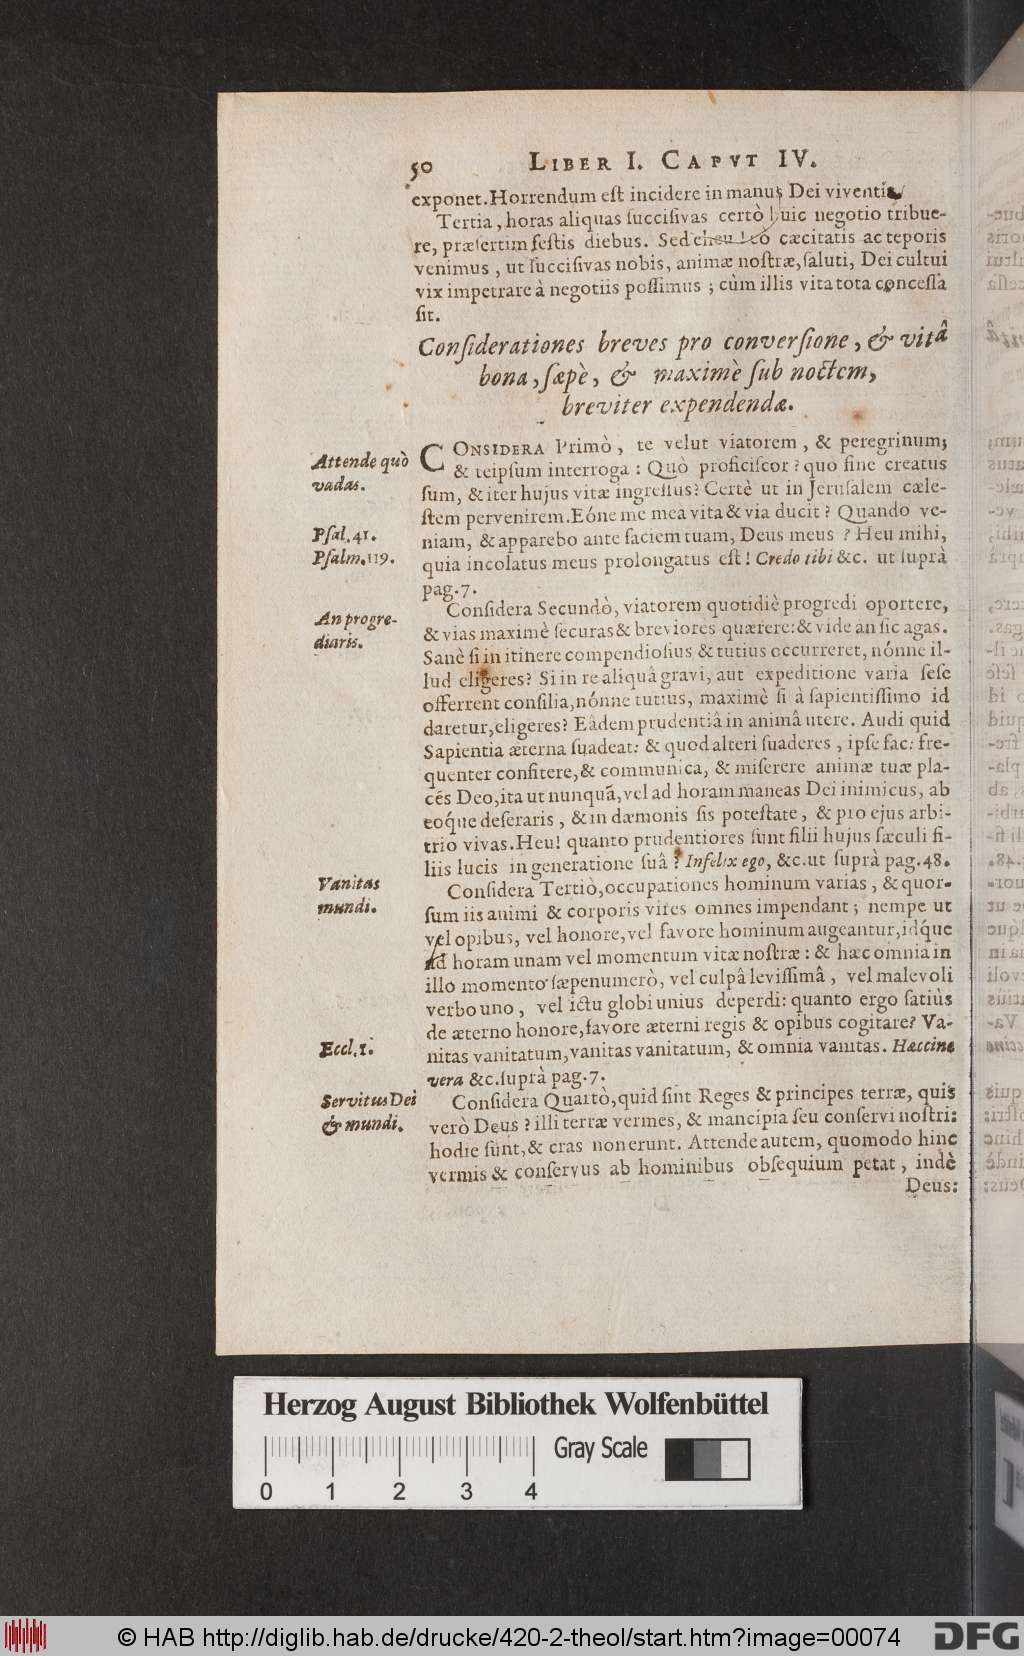 50 LIBER I. CAPVT IV.
exponet. Horrendum eſt incidere in manus Dei viventis
Tertia, horas aliquas ſucciſivas certò huic negotio tribue-
re, præſertim feſtis diebus. Sed eheu! eò cæcitatis ac teporis
venimus, ut ſucciſivas nobis, animæ noſtræ, ſaluti, Dei cultui
vix impetrare à negotiis poſſimus; cùm illis vita tota conceſſa
ſit.
Conſiderationes breves pro converſione, & vitâ
bona, ſæpè, & maximè ſub noctem,
breviter expendendæ.
Attende quò
vadas.
CONSIDERA Primò, te velut viatorem, & peregrinum;
& teipſum interroga: Quò proficiſcor? quo fine creatus
ſum, & iter hujus vitæ ingreſſus? Certè ut in Jeruſalem cæle-
ſtem pervenirem. Eóne me mea vita & via ducit? Quando ve-
Pſal. 41.
niam, & apparebo ante faciem tuam, Deus meus? Heu mihi,
Pſalm. 119.
quia incolatus meus prolongatus eſt! Credo tibi &c. ut ſuprà
pag. 7.
An progre-
diaris.
Conſidera Secundò, viatorem quotidiè progredi oportere,
& vias maximè ſecuras & breviores quærere: & vide an ſic agas.
Sanè ſi in itinere compendioſius & tutius occurreret, nónne il-
lud eligeres? Si in re aliquâ gravi, aut expeditione varia ſeſe
offerrent conſilia, nónne tutius, maximè ſi à ſapientiſſimo id
daretur, eligeres? Eâdem prudentiâ in animâ utere. Audi quid
Sapientia æterna ſuadeat: & quod alteri ſuaderes, ipſe fac: fre-
quenter confitere, & communica, & miſerere animæ tuæ pla-
cēs Deo, ita ut nunquā, vel ad horam maneas Dei inimicus, ab
eóque deſeraris, & in dæmonis ſis poteſtate, & pro ejus arbi-
trio vivas. Heu! quanto prudentiores ſunt filii hujus ſæculi fi-
liis lucis in generatione ſuâ? Infelix ego, &c. ut ſuprà pag. 48.
Vanitas
mundi.
Conſidera Tertiò, occupationes hominum varias, & quor-
ſum iis animi & corporis vires omnes impendant; nempe ut
vel opibus, vel honore, vel favore hominum augeantur, idq́ue
ad horam unam vel momentum vitæ noſtræ: & hæc omnia in
illo momento ſæpenumerò, vel culpâ leviſſimâ, vel malevoli
verbo uno, vel ictu globi unius deperdi: quanto ergo ſatiùs
de æterno honore, favore æterni regis & opibus cogitare? Va-
Eccl. 1.
nitas vanitatum, vanitas vanitatum, & omnia vanitas. Hæccine
vera &c. ſuprà pag. 7.
Servitus Dei
& mundi.
Conſidera Quartò, quid ſint Reges & principes terræ, quis
verò Deus? illi terræ vermes, & mancipia ſeu conſervi noſtri:
hodie ſunt, & cras non erunt. Attende autem, quomodo hinc
vermis & conſervus ab hominibus obſequium petat, indè
Deus:
Herzog August Bibliothek Wolfenbüttel
Gray Scale
0 1 2 3 4
© HAB http://diglib.hab.de/drucke/420-2-theol/start.htm?image=00074
DFG